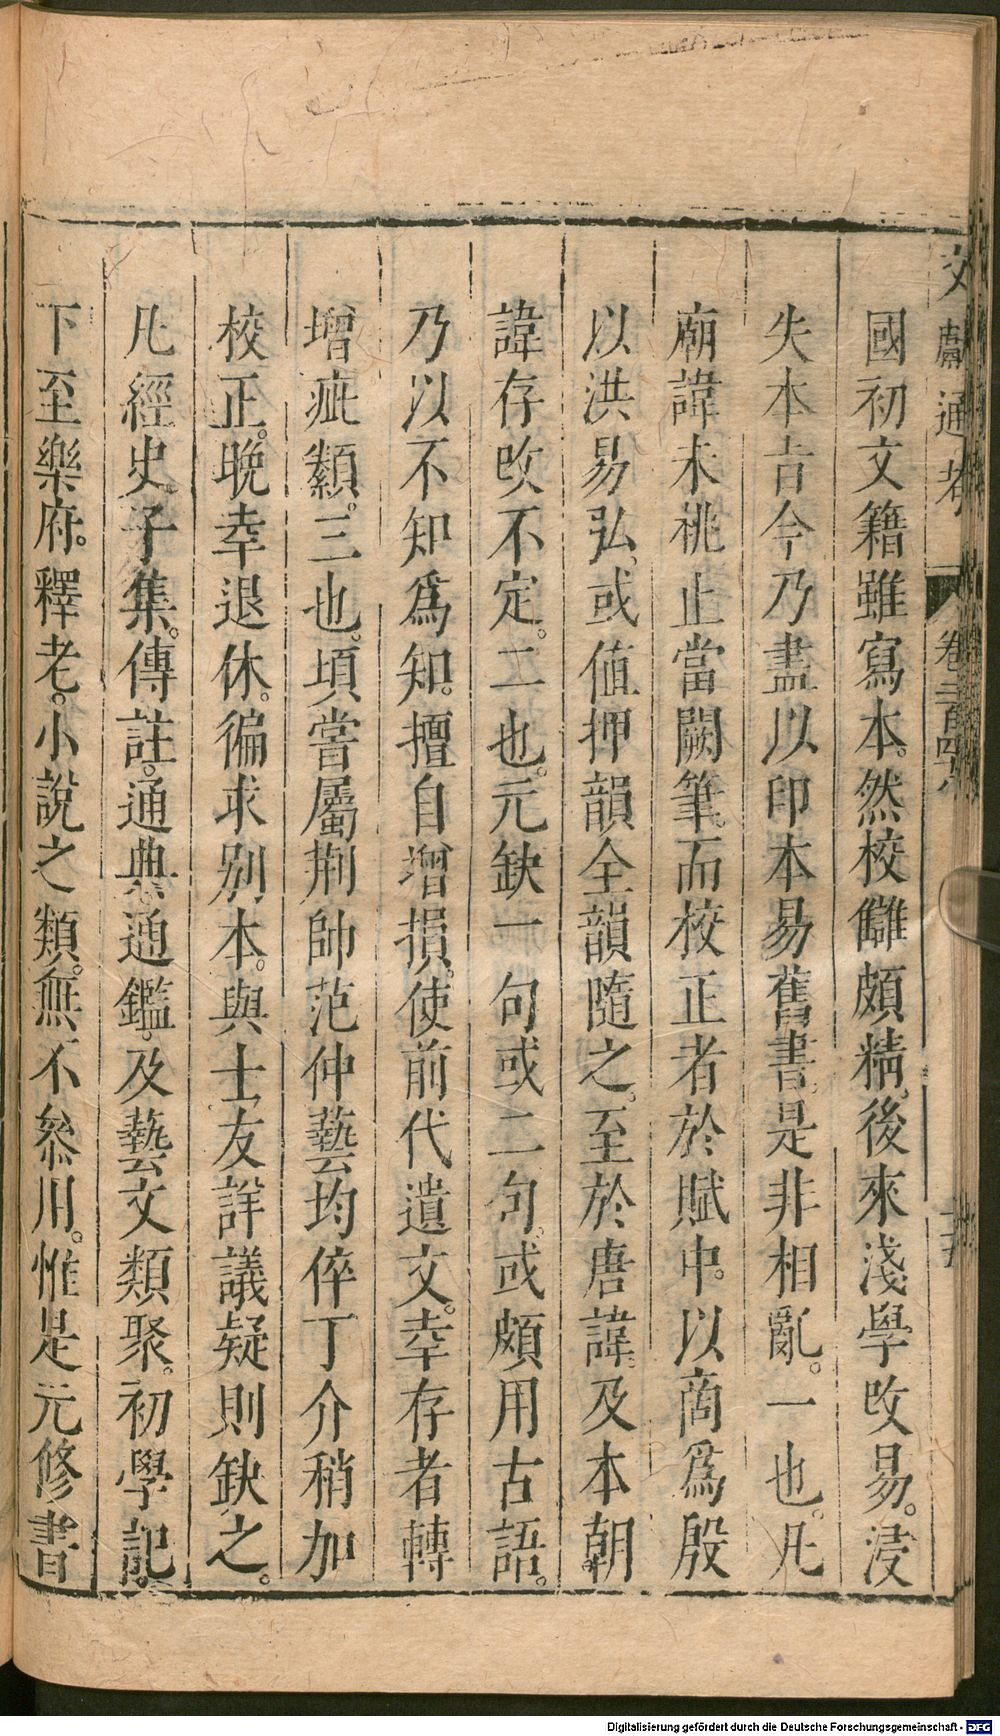 文獻通考 卷二百四八
國初文籍雖寫本。然校讎頗精。後來淺學改易。浸
失本古今乃盡以印本易舊書。是非相亂。一也。凡
廟諱未祧止當闕筆。而校正者於賦中。以商爲殷
以洪易弘。或值押韻全韻隨之。至於唐諱。及本朝
諱存改不定。二也。元缺一句或二句。或頗用古語。
乃以不知爲知。擅自增損。使前代遺文。幸存者轉
增疵纇。三也。頃嘗屬荆帥范仲藝均倅丁介稍加
校正。晚幸退休。徧求别本。與士友詳議疑則缺之。
凡經史子集。傳註。通典通鑑。及藝文類聚。初學記。
下至樂府。釋老。小說之類。無不叅用。惟是元修書
Digitalisierung gefördert durch die Deutsche Forschungsgemeinschaft - DFG